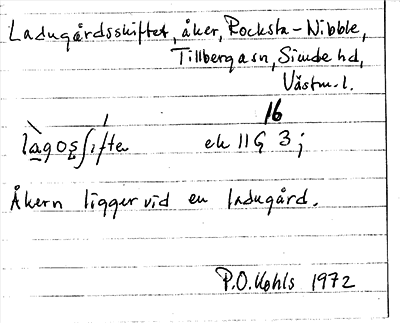 Ladugårdsskiftet, åker, Rocksta-Nibble,
Tillberga sn, Simde hd,
Västm. l.
16
ek 11G 3 ;
Åkern ligger vid en ladugård.
P.O. Kohls 1972